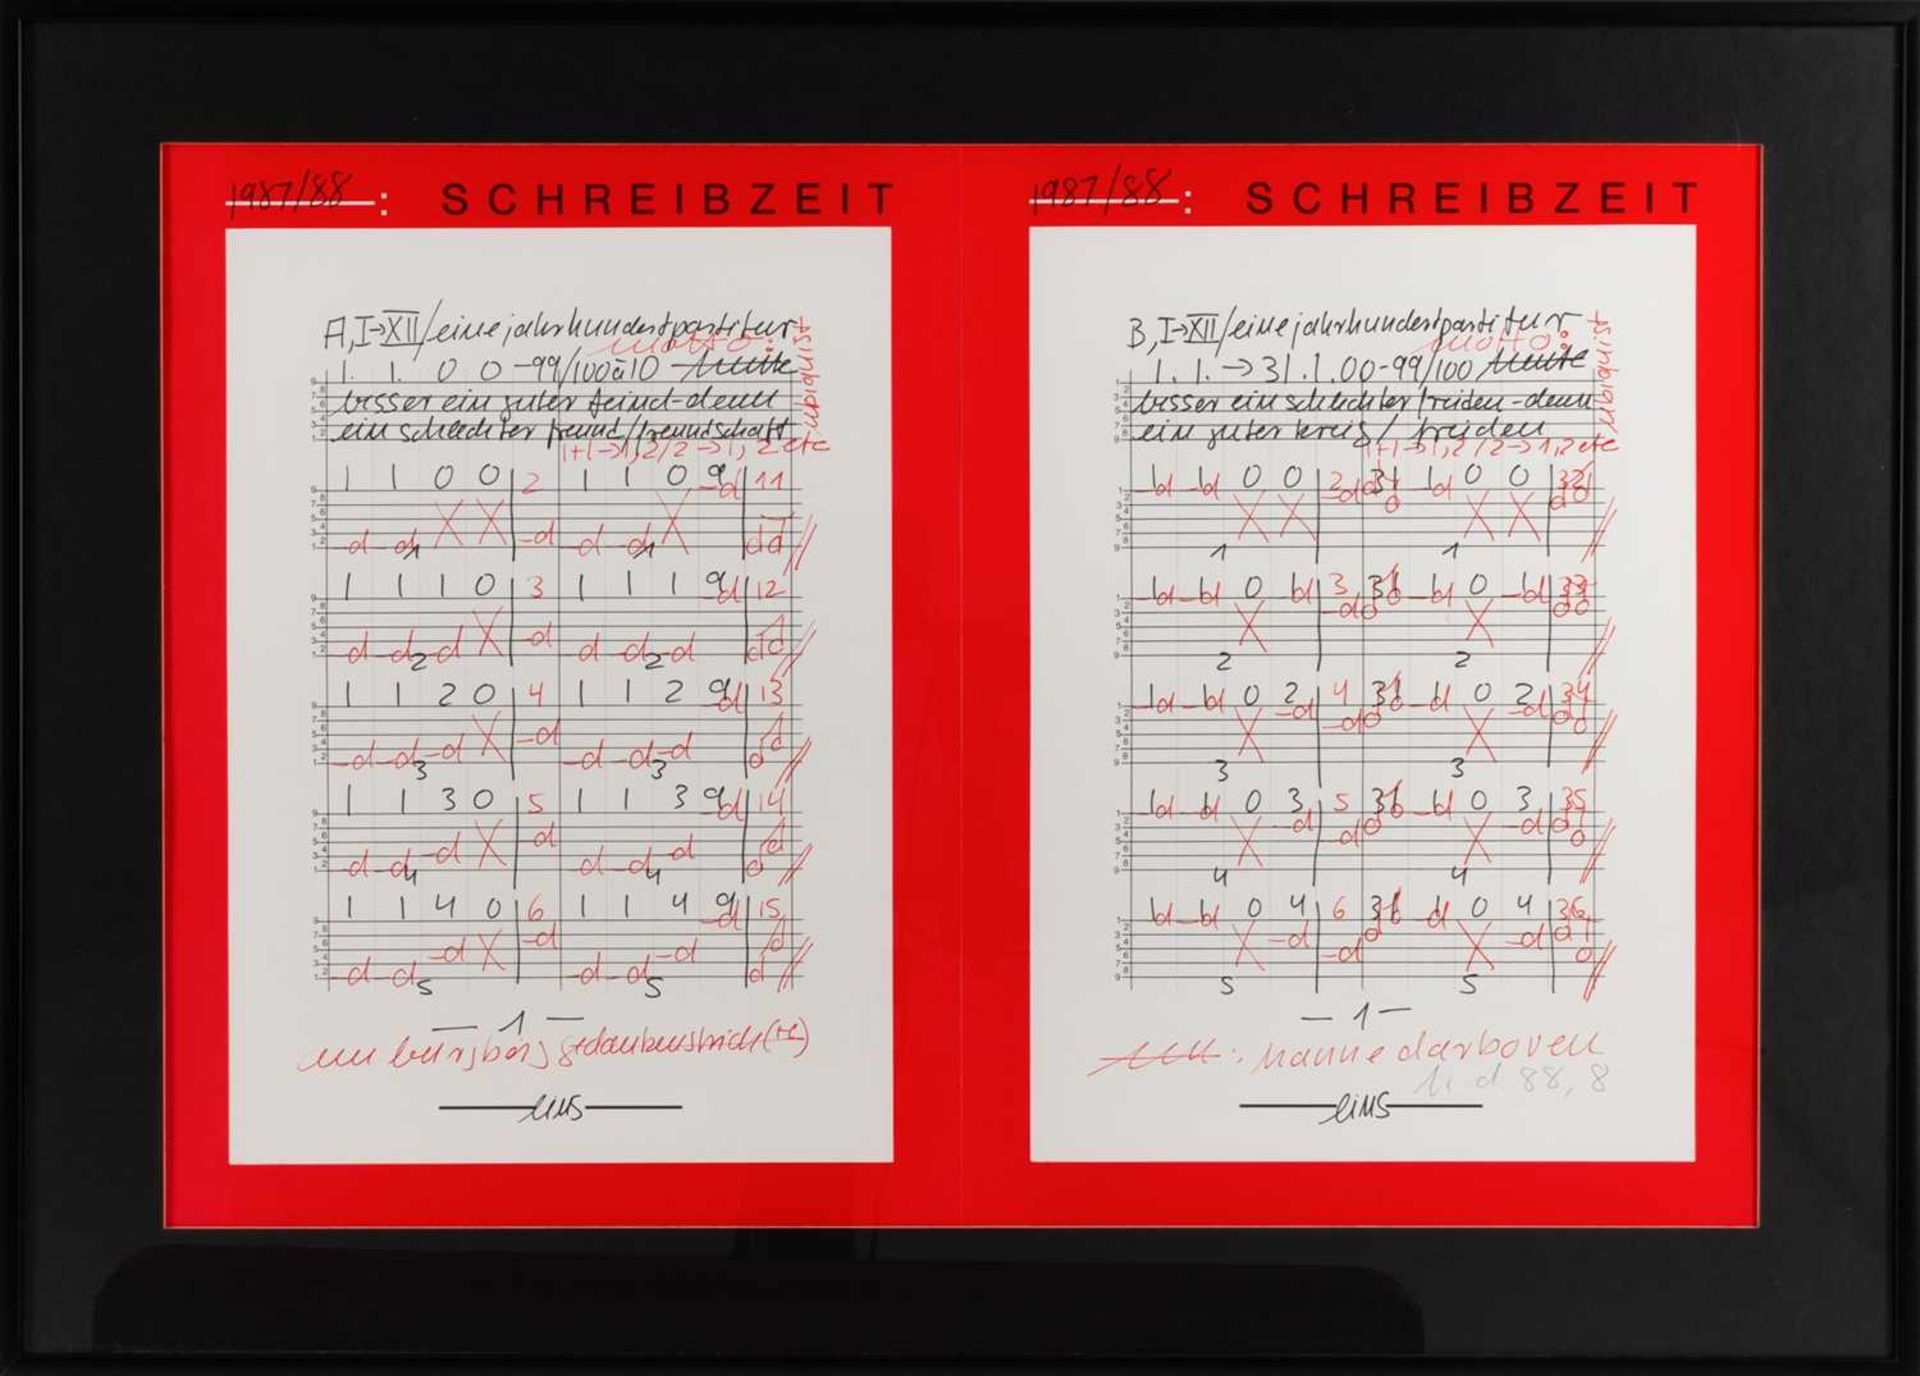 1987/88 : SCHREIBZEIT
A, I→XII/eine jahrhundertpartitur
motto:
1. 1. 0 0 -99/100 à 10
besser ein guter feind-denn
ein schlechter freund/freundschaft
1+1→1, 2/2→1, 2 etc
1 1 0 0 2 1 1 0 9 11
1 1
1 1 1 0 3 1 1 1 9 12
2 2
1 1 2 0 4 1 1 2 9 13
3 3
1 1 3 0 5 1 1 3 9 14
4 4
1 1 4 0 6 1 1 4 9 15
5 5
— 1 —
gedankenstrich(e)
eins
1987/88 : SCHREIBZEIT
B, I→XII/eine jahrhundertpartitur
motto:
1. 1. → 31. 1. 00-99/100 heute
besser ein schlechter frieden-denn
ein guter krieg/frieden
1+1→1, 2/2→1, 2 etc
1 1 0 0 2 31 1 0 0 32
1 1
1 1 0 1 3 31 1 0 1 33
2 2
1 1 0 2 4 31 1 0 2 34
3 3
1 1 0 3 5 31 1 0 3 35
4 4
1 1 0 4 6 31 1 0 4 36
5 5
— 1 —
hanne darboven
88, 8
eins